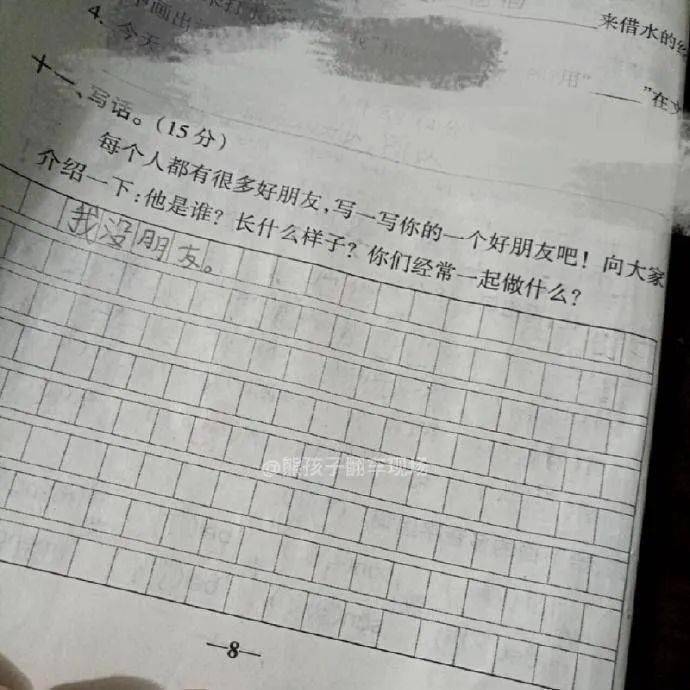 书画出
来借水的
4. 今天
用“____”在文
十一、写话。(15分)
每个人都有很多好朋友,写一写你的一个好朋友吧!向大家
介绍一下:他是谁?长什么样子?你们经常一起做什么?
我没朋友。
@熊孩子翻车现场
—8—